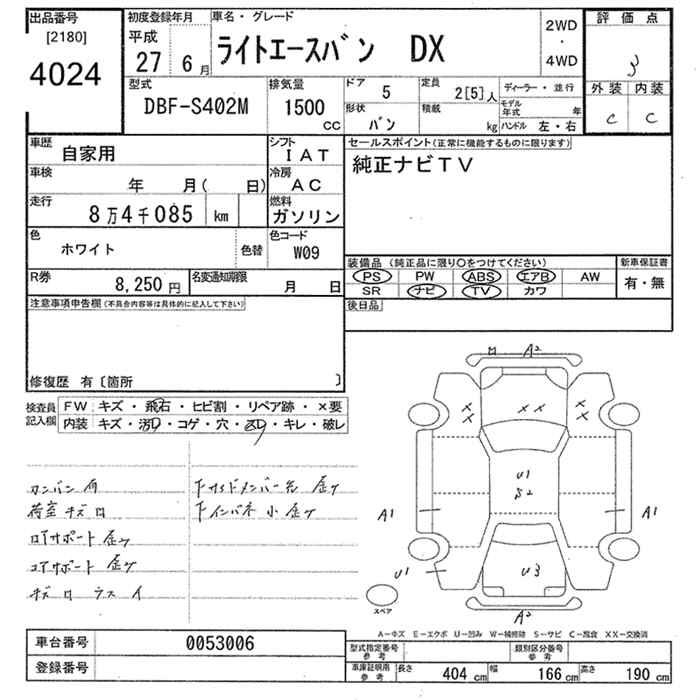 出品番号 初度登録年月 車名・グレード 2WD ・ 4WD 評価点
[2180] 平成
4024 27 6月 ライトエースバン DX 3
型式 排気量 ドア 5 定員 2[5]人 ディーラー・並行 外装 内装
DBF-S402M 1500 CC 形状 バン 積載 kg モデル年式 年 ハンドル 左・右 C C
車歴 自家用 シフト IAT セールスポイント(正常に機能するものに限ります)
車検 年 月( 日) 冷房 AC 純正ナビTV
走行 8万4千085 km 燃料 ガソリン
色 ホワイト 色替 色コード W09
装備品 (純正品に限り○をつけてください) 新車保証書
R券 8,250円 名変通知期限 月 日 PS PW ABS エアB AW 有・無
SR ナビ TV カワ
注意事項申告欄(不具合内容等は具体的に記入して下さい) 後日品
修復歴 有〔箇所 〕
検査員記入欄 FW キズ・飛石・ヒビ割・リペア跡・×要
内装 キズ・汚れ・コゲ・穴・スレ・キレ・破レ
A2
XX XX XX
カンバン有 下サイドメンバー先 歪ケ
荷室キズ口 下インパネ 小 歪ケ
U1
S2
A1 A1
ロアサポート 歪ケ
コアサポート 歪ケ
U1 U3
スペア
A2
A-キズ E-エクボ U-凹み W-補修跡 S-サビ C-腐食 XX-交換済
車台番号 0053006 型式指定番号参考 類別区分番号参考
登録番号 車庫証明用参考 長さ 404cm 幅 166cm 高さ 190cm